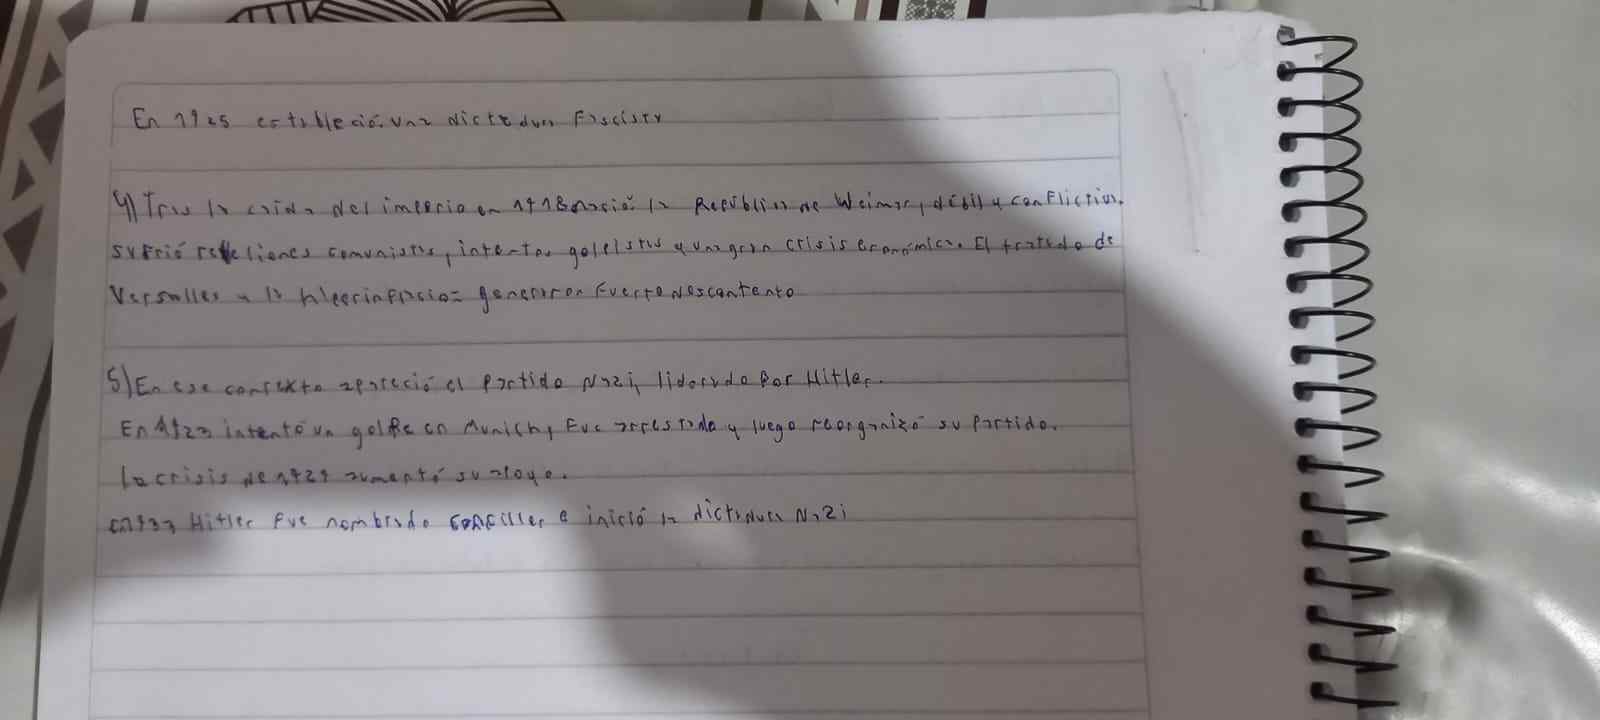 En 1925 estableció una dictadura Fascista
4) Tras la caida del imperio en 1918 nació la República de Weimar, débil y conflictiva.
sufrió rebeliones comunistas, intentos golpistas y una gran crisis económica. El tratado de
Versalles y la hiperinflacion generaron fuerte descontento
5) En ese contexto apareció el partido Nazi, liderado por Hitler.
En 1923 intentó un golpe en Munich, fue arrestado y luego reorganizó su partido.
La crisis de 1929 aumentó su apoyo.
En 1933 Hitler fue nombrado canciller e inició la dictadura Nazi